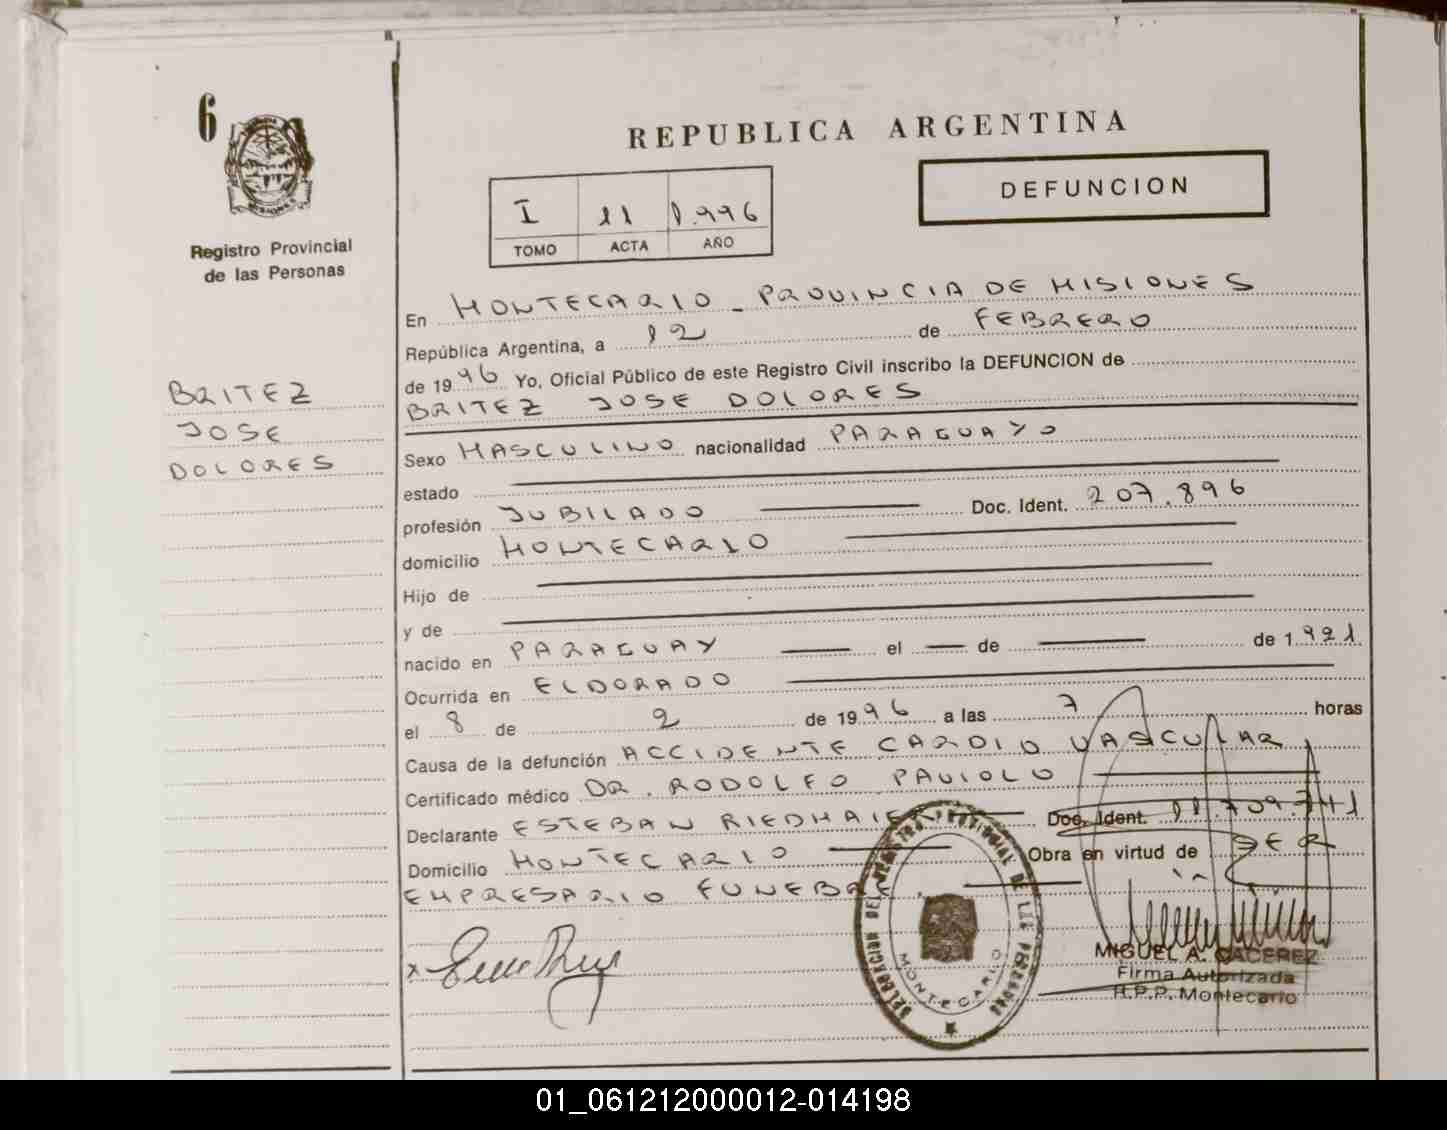 6
REPUBLICA ARGENTINA
DEFUNCION
I 11 1.996
TOMO ACTA AÑO
Registro Provincial
de las Personas
BRITEZ
JOSE
DOLORES
En MONTECARLO - PROVINCIA DE MISIONES
República Argentina, a 12 de FEBRERO
de 1996 Yo, Oficial Público de este Registro Civil inscribo la DEFUNCION de
BRITEZ JOSE DOLORES
Sexo MASCULINO nacionalidad PARAGUAYO
estado
profesión JUBILADO Doc. Ident. 207.896
domicilio MONTECARLO
Hijo de
y de
nacido en PARAGUAY el de de 1.921
Ocurrida en ELDORADO
el 8 de 2 de 1996 a las 7 horas
Causa de la defunción ACCIDENTE CARDIO VASCULAR
Certificado médico DR. RODOLFO PAVIOLO
Declarante ESTEBAN Doc. Ident. 11.709.741
Domicilio MONTECARLO Obra en virtud de SER
EMPRESARIO FUNEBRE
DELEGACION DEL REGISTRO PROVINCIAL DE LAS PERSONAS
MONTECARLO
MIGUEL A. CACEREZ
Firma Autorizada
R.P.P. Montecarlo
01_061212000012-014198